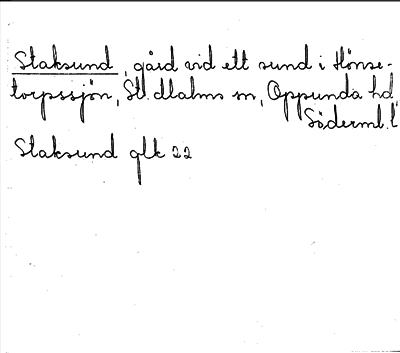 Staksund, gård vid ett sund i Hönse-
torpssjön, St. Malms sn, Oppunda hd,
Söderml. l.
Staksund glk 22